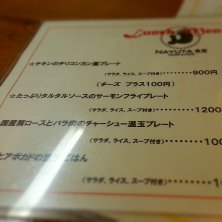 Lunch Menu
NAYUTA
☆チキンのチリコンカン温プレート
(サラダ、ライス、スープ付き)‥‥‥‥900円
(チーズ プラス100円)
☆たっぷりタルタルソースのサーモンフライプレート
(サラダ、ライス、スープ付き)‥‥‥‥1200
国産肩ロースとバラ肉のチャーシュー温玉プレート
(サラダ、ライス、スープ付き)‥‥‥‥100
とアボカドの
ごはん
(サラダ、スープ付き)‥‥‥‥